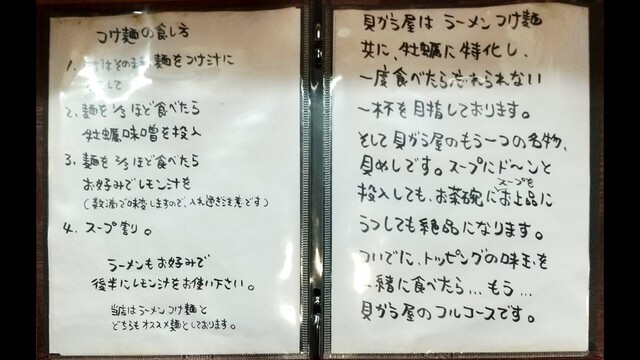 つけ麺の食し方
1. まずはその麺、麺をつけ汁に
して
2. 麺を1/3ほど食べたら
牡蠣味噌を投入
3. 麺を2/3ほど食べたら
お好みでレモン汁を
(数滴で味変しますので、入れ過ぎ注意です)
4. スープ割り。
ラーメンもお好みで
後半にレモン汁をお使い下さい。
当店はラーメンつけ麺と
どちらもオススメ麺としております。
貝がら屋は ラーメンつけ麺
共に、牡蠣に特化し、
一度食べたら忘れられない
一杯を目指しております。
そして貝がら屋のもう一つの名物、
貝めしです。スープにド〜ンと
投入しても、お茶碗にスープをお上品に
うつしても絶品になります。
ついでに、トッピングの味玉を
一緒に食べたら...もう...
貝がら屋のフルコースです。